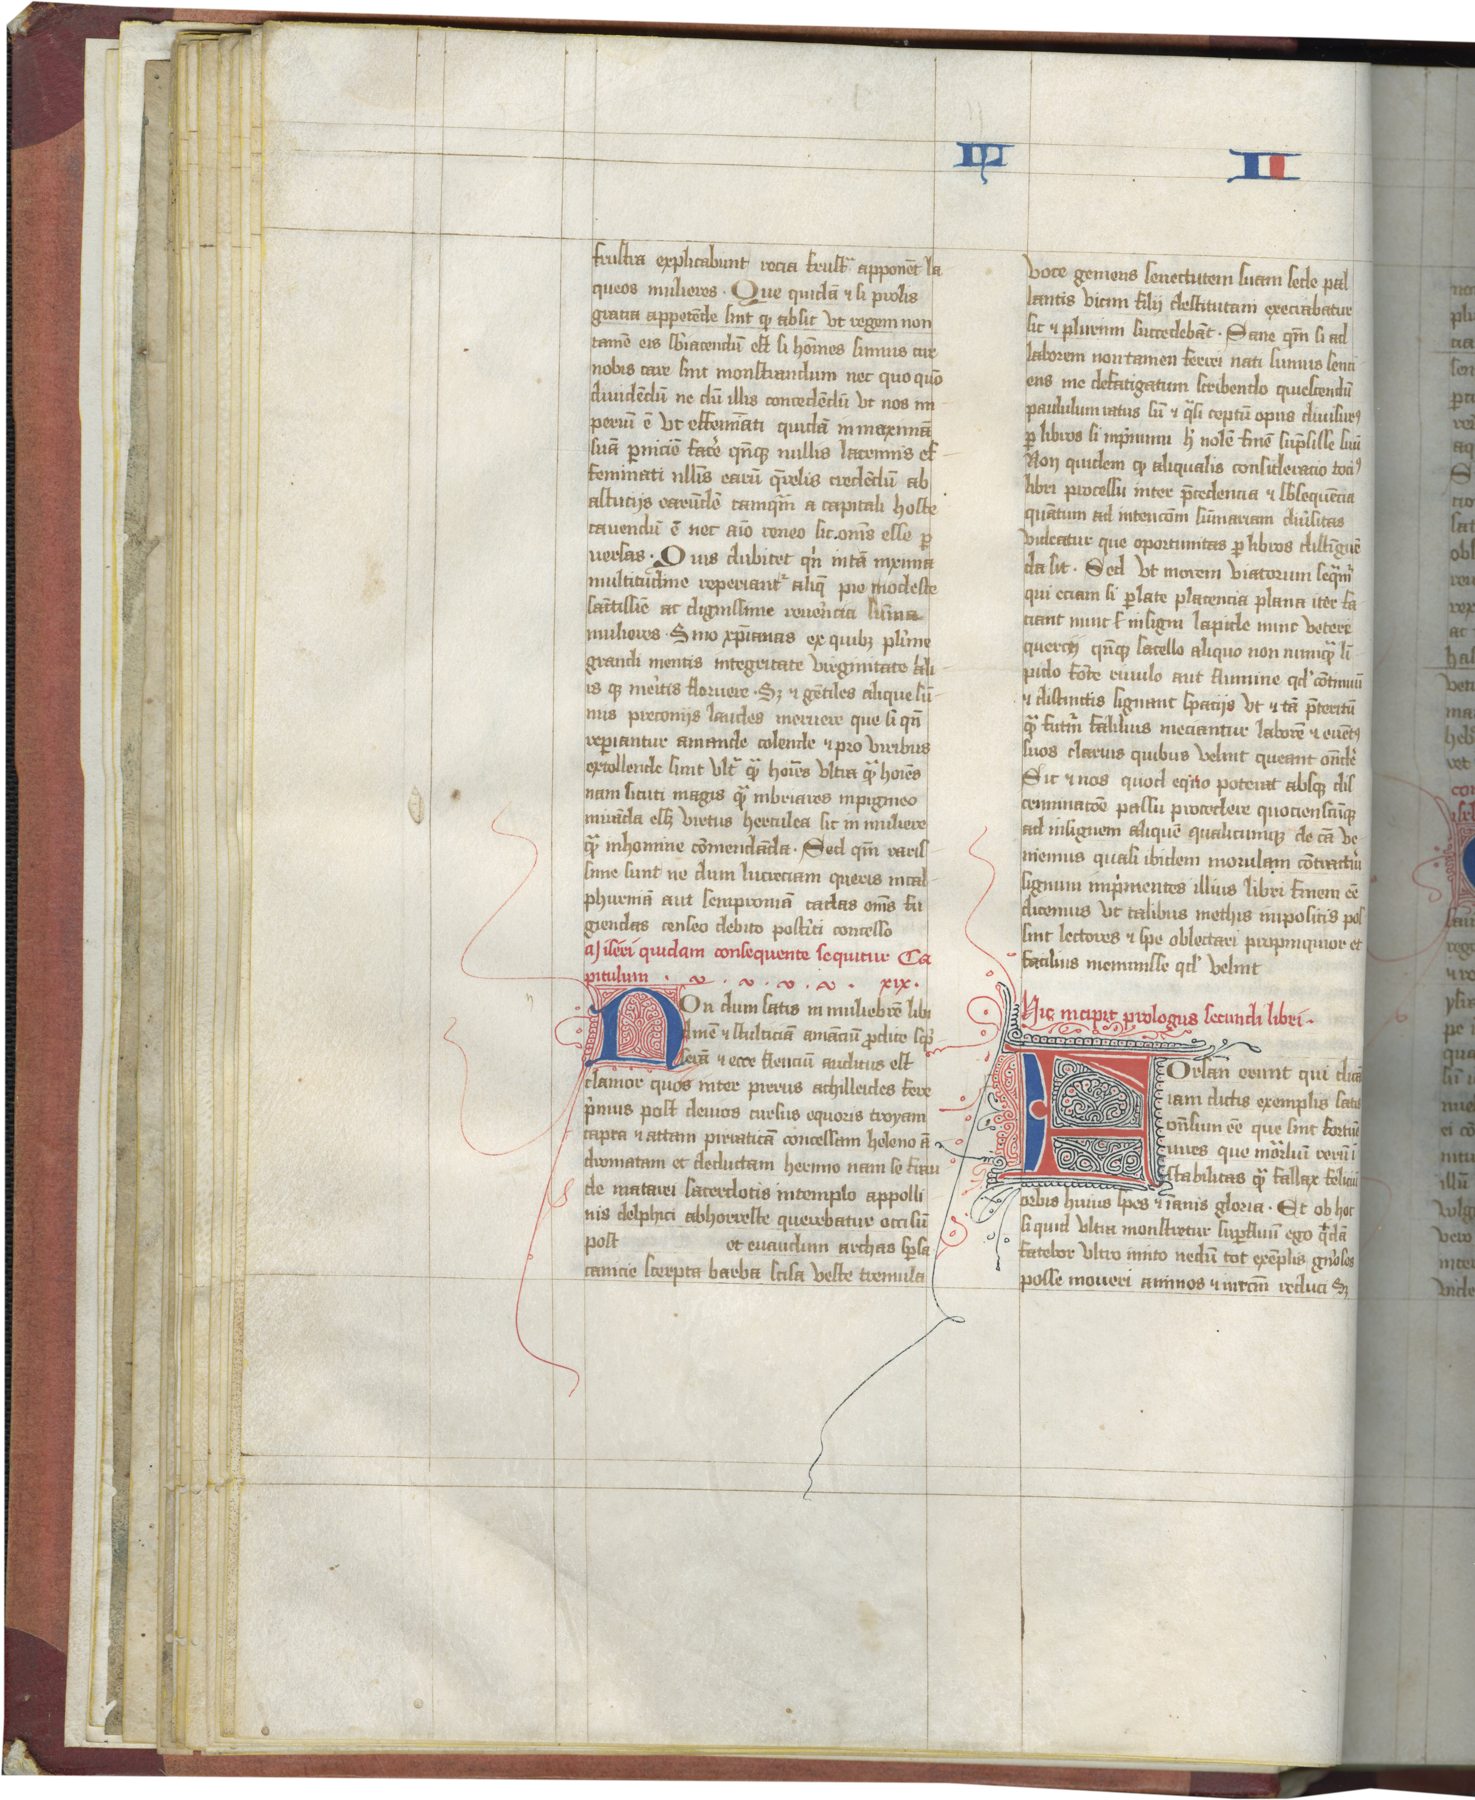 frustra explicabunt recia frustͣ apponēt la
queos mulieres · Que quidā ⁊ si prolis
gratia appetēde sint qꝫ absit vt regem non
tamē eis sb̄iacendū est si hom̄es sumus cur
nobis care sint monstrandum nec quoquo
diuidēdū ne dū illis concedēdū vt nos im
periū ē vt effemīati quidā in maximā
suā ꝑniciē facē qn̄qꝫ nullis lacrimis ef
feminati nllīs earū q̄relis credēdū ab
astucijs earūdē tamqͣm a capitali hoste
cauendū ē nec aīo reneo sic om̄s esse ꝑ
uersas · Quis dubitet qn̄ in tā maxima
multitudine reperiant᷑ aliqͣ pie modeste
san̄tissīe ac dignissime reuerēcia sum̄a
mulieres · Sino xp̄ianas ex quibꝫ plīme
grandi mentis integritate virginitate ali
is qꝫ mer̄itis floruere · Sꝫ ⁊ gētiles alique sū
mis preconijs laudes meruere que si qn̄
reꝑiantur amande colende ⁊ pro viribus
extollende sunt vltͣ qͣ hoīes vltra qͣ hoīes
nam sicuti magis qͣ in briareo in pigmeo
mirāda essꝫ virtus herculea sic in muliere
qͣ in homine cōmendāda · Sed qm̄ raris
sime sunt ne dum lucreciam queris in cal
phurniā aut semproniā cadas om̄s fu
giendas censeo debito post'iti concesso
ꝯ) iseri quidam consequente sequitur Ca
pitulum · · · · · xix ·
Non dum satis in muliebrē libi
dinē ⁊ stulticiā amāciū ꝑdite sc̄p
serā ⁊ ecce flenciū auditus est
clamor quos inter pirrus achilleides fere
p̄mus post demos cursus equoris troyam
capta ⁊ actam piraticā concessam heleno ā
dromatam et deductam herimo nam se frau
de matarei sacerdotis in templo appolli
nis delphici abhorreste querebatur occisū
post et euandrum archas sp̄sa
canicie scerpta barba scisa veste tremula
III
II
voce gemens senectutem suam sede pal
lantis vicini filij destitutam execrabatur
sic ⁊ plurimi succedebāt · Sane qm̄ si ad
laborem non tamen ferrei nati sumus senci
ens me defatigatum scribendo quiescendū
paululum ratus sū ⁊ qͣsi ceptū opus diuisurꝰ
ꝑ libros si inp̄mum hͦ nolē finē sup̄sisse suū
Non quidem qꝫ aliqualis consideracio tociꝰ
libri processu inter p̄cedencia ⁊ sb̄sequēcia
quātum ad intencōm sum̄ariam diuīsitas
videatur que oportunitas ꝑ libros distīgue
da sit · Sed vt morem viatorum seqͣmͬ
qui eciam si ꝑ late placencia plana iter fa
ciant nunc ī insigni lapide nunc veteri
quercu qn̄qꝫ sacello aliquo non nunqͣ li
pido fōte riuulo aut flumine qd' cōtinuū
⁊ distinctis signant spacijs vt ⁊ tā p̄teritū
qͣ futuͬ facilius meciantur laborē ⁊ euētꝰ
suos clarius quibus velint queant on̄dē
Sic ⁊ nos quod eq̄no poterat absqꝫ dis
criminacōe passu procedere quociens cūqꝫ
ad insignem aliquē qualitumqꝫ de cā ve
niemus quasi ibidem morulam cōtracturi
signum inp̄mentes illius libri finem eē
dicemus vt talibus methis inpositis pos
sint lectores ⁊ spe oblectari propinquior et
facilius meminisse qd' velint
Hic incipit prologus secundi libri ·
Forsan erunt qui dicā
iam dictis exemplis satis
on̄sum eē que sint fortūe
uires que mortaliū rerū ī
stabilitas qͣ fallax feliciū
orbis huius spes ⁊ īanis gloria · Et ob hoc
si quid vltra monstretur suꝑfluū ego q̄dā
fatebor vltro inuito nedū tot exēplis gn̄osos
posse moueri animos ⁊ in rectū reduci Sꝫ